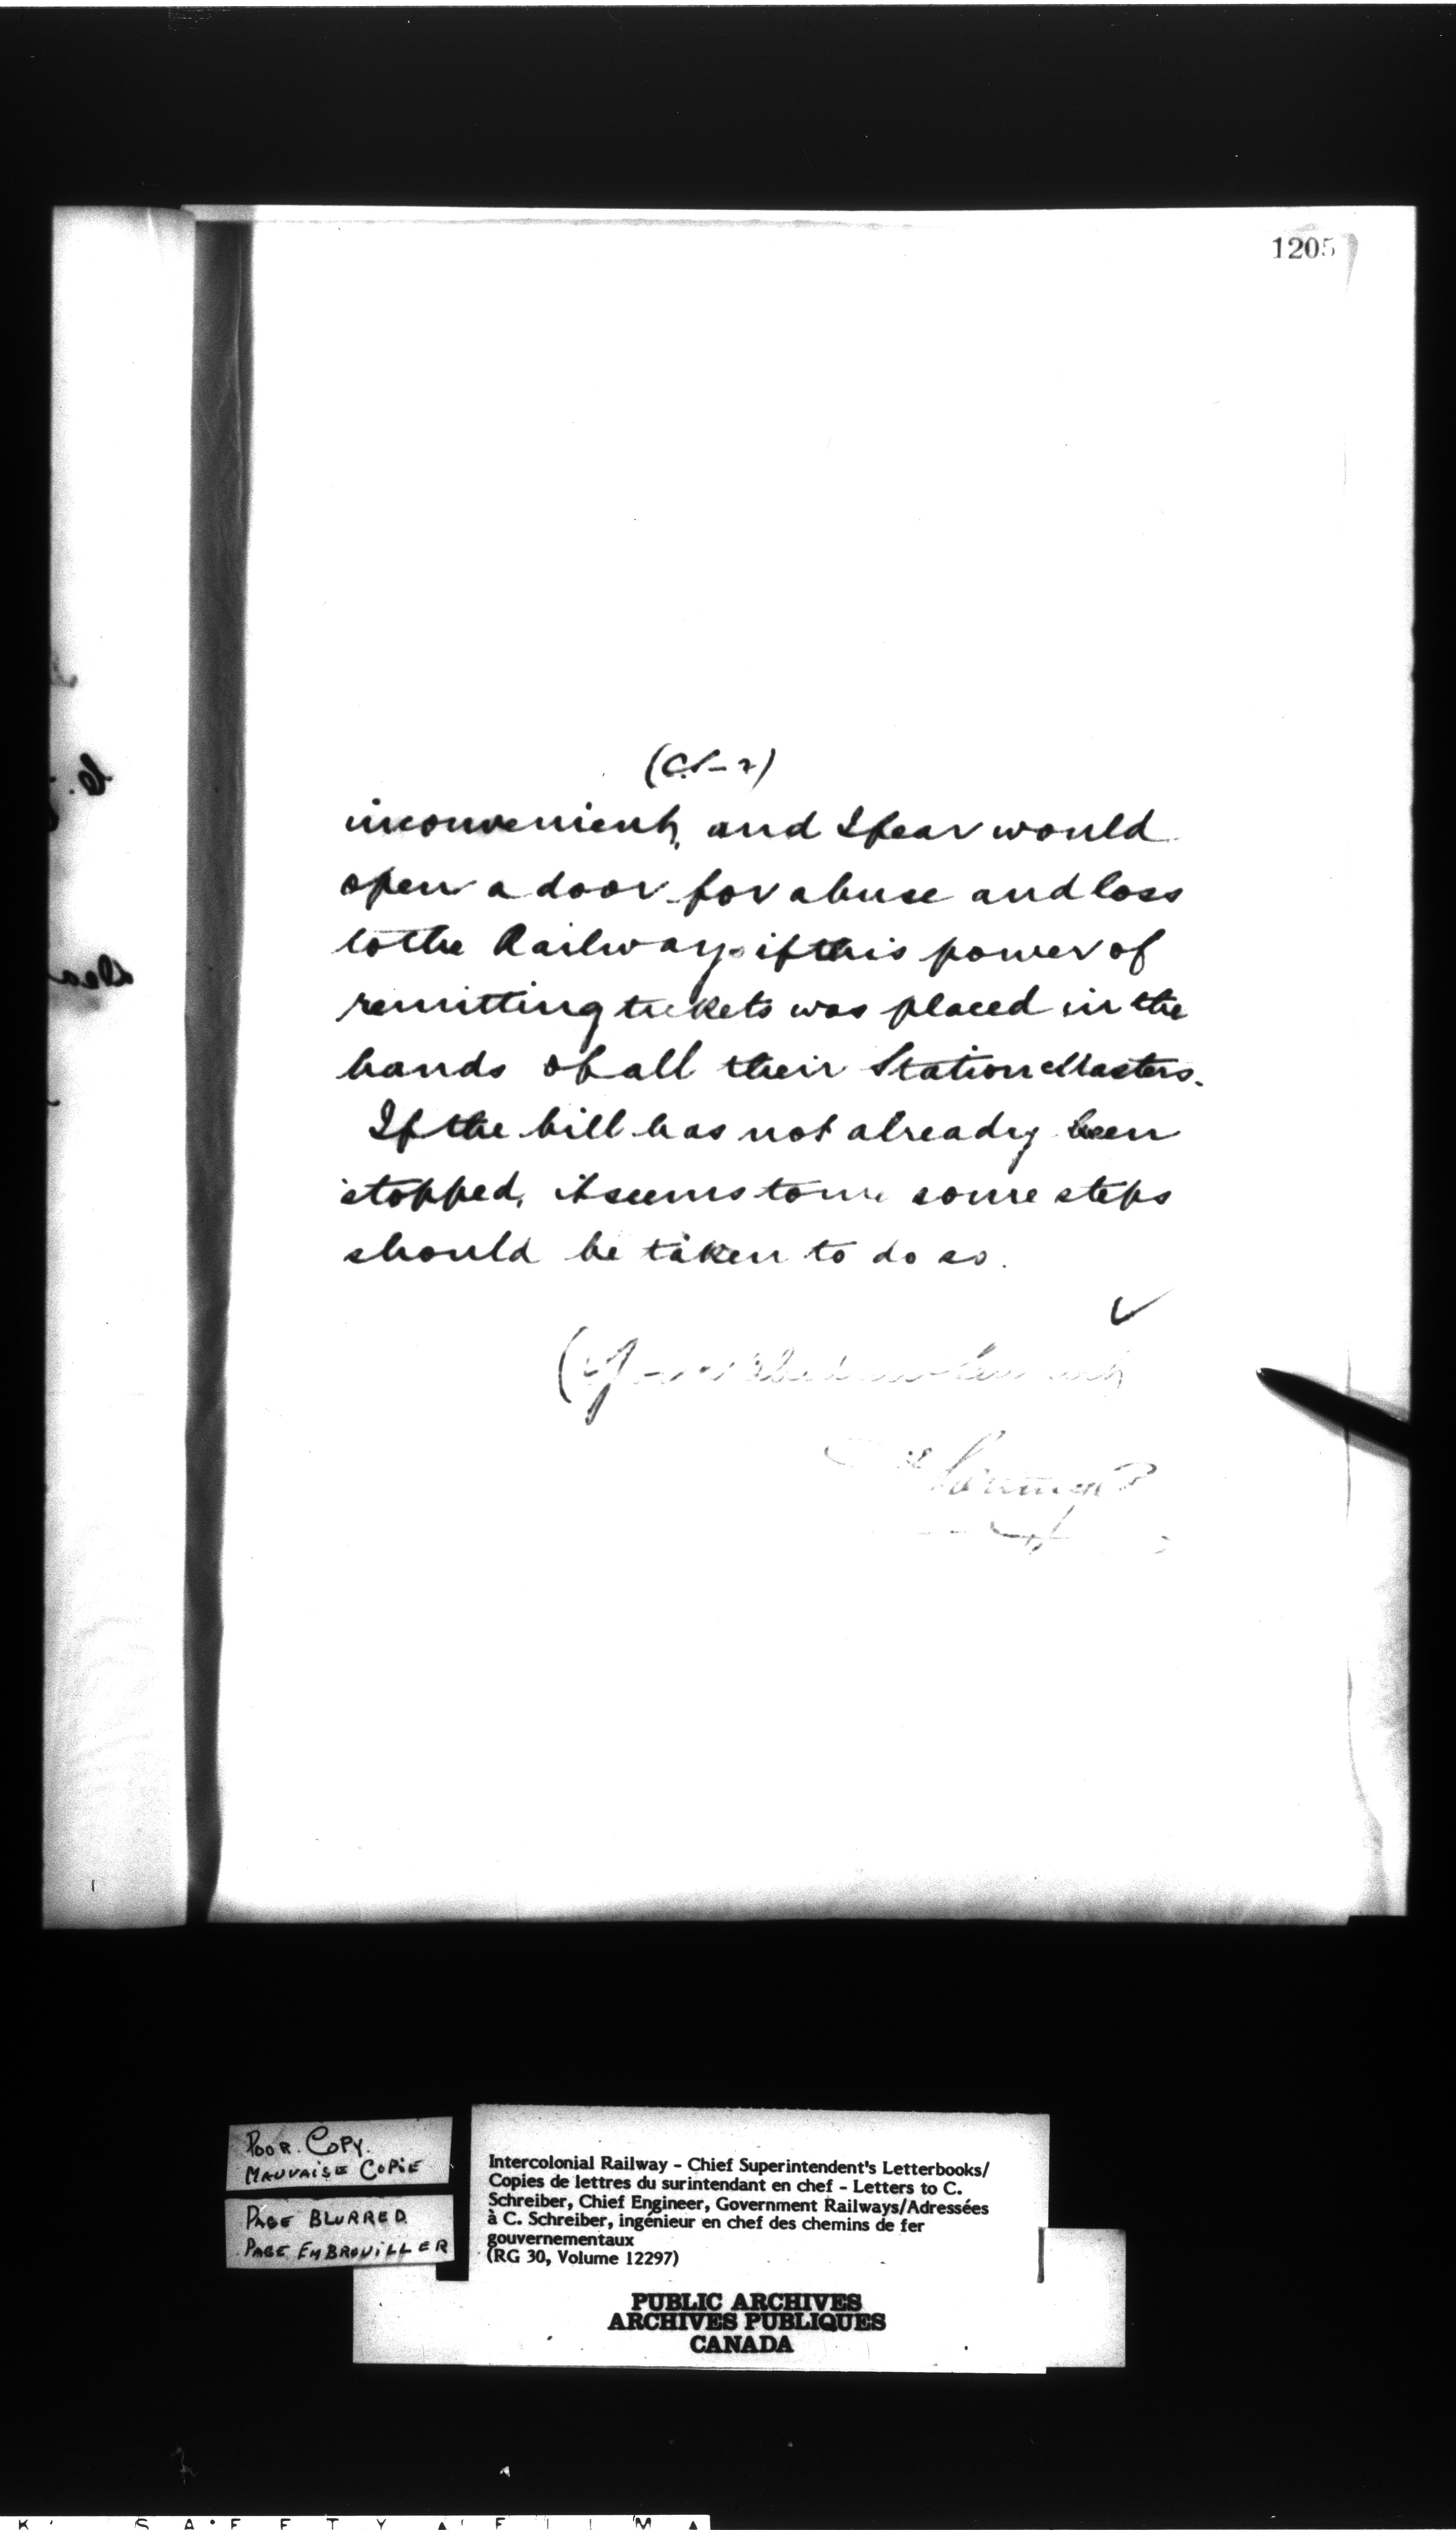 1205
(C.S-2)
inconvenient, and I fear would
open a door for abuse and loss
to the Railway if this power of
remitting tickets was placed in the
hands of all their Station Masters.
If the bill has not already been
stopped, it seems to me some steps
should be taken to do so.
POOR COPY.
MAUVAISE COPIE
PAGE BLURRED
PAGE EMBROUILLER
Intercolonial Railway - Chief Superintendent's Letterbooks/
Copies de lettres du surintendant en chef - Letters to C.
Schreiber, Chief Engineer, Government Railways/Adressées
à C. Schreiber, ingénieur en chef des chemins de fer
gouvernementaux
(RG 30, Volume 12297)
PUBLIC ARCHIVES
ARCHIVES PUBLIQUES
CANADA